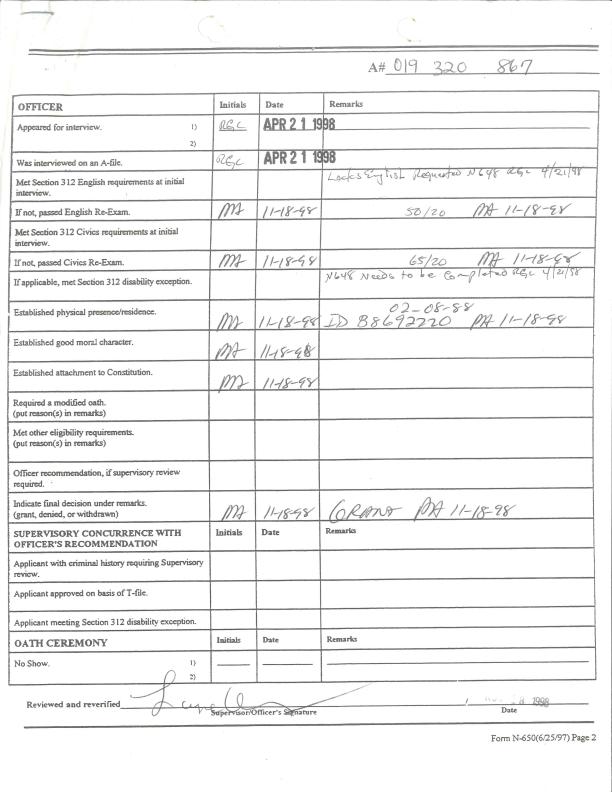 A# 019 320 867
OFFICER Initials Date Remarks
Appeared for interview. 1) RGC APR 21 1998
2)
Was interviewed on an A-file. RGC APR 21 1998
Met Section 312 English requirements at initial Lacks English Requested N648 RGC 4/21/98
interview.
If not, passed English Re-Exam. MA 11-18-98 50/20 MA 11-18-98
Met Section 312 Civics requirements at initial
interview.
If not, passed Civics Re-Exam. MA 11-18-98 65/20 MA 11-18-98
If applicable, met Section 312 disability exception. N648 Needs to be Completed RGC 4/21/98
02-08-88
Established physical presence/residence. MA 11-18-98 ID B8692220 MA 11-18-98
Established good moral character. MA 11-18-98
Established attachment to Constitution. MA 11-18-98
Required a modified oath.
(put reason(s) in remarks)
Met other eligibility requirements.
(put reason(s) in remarks)
Officer recommendation, if supervisory review
required.
Indicate final decision under remarks.
(grant, denied, or withdrawn) MA 11-18-98 GRANT MA 11-18-98
SUPERVISORY CONCURRENCE WITH Initials Date Remarks
OFFICER'S RECOMMENDATION
Applicant with criminal history requiring Supervisory
review.
Applicant approved on basis of T-file.
Applicant meeting Section 312 disability exception.
OATH CEREMONY Initials Date Remarks
No Show. 1)
2)
Reviewed and reverified 1998
Supervisor/Officer's Signature Date
Form N-650(6/25/97) Page 2